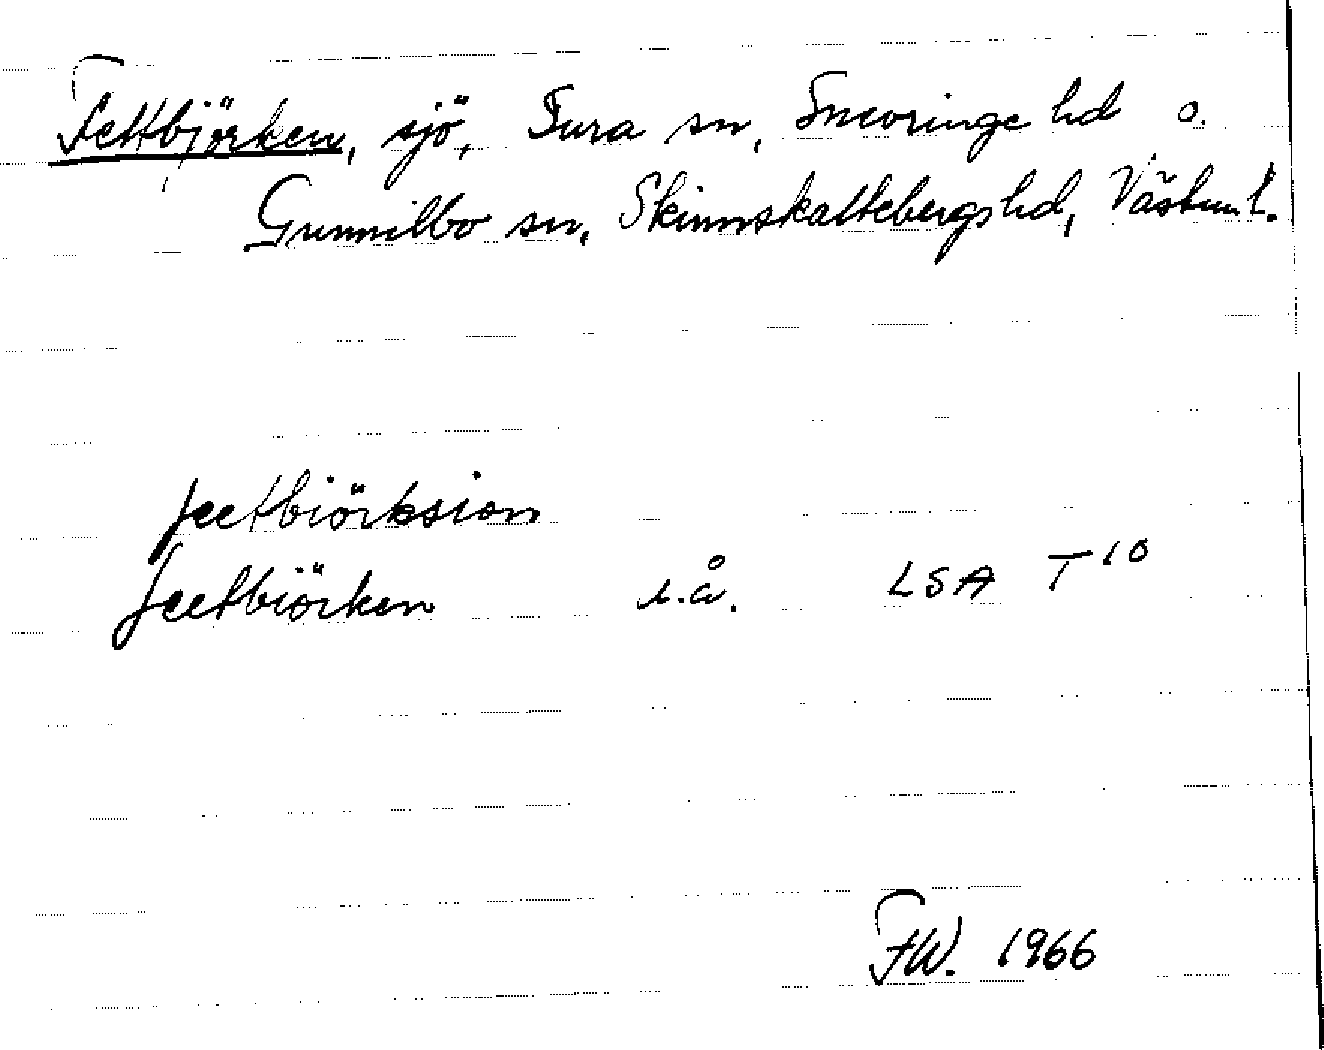 Fettbjörken, sjö, Sura sn, Snevringe hd o.
Gunnilbo sn, Skinnskattebergs hd, Västml.
feetbiörksion
feetbiörken u.å. LSA T 10
FW. 1966